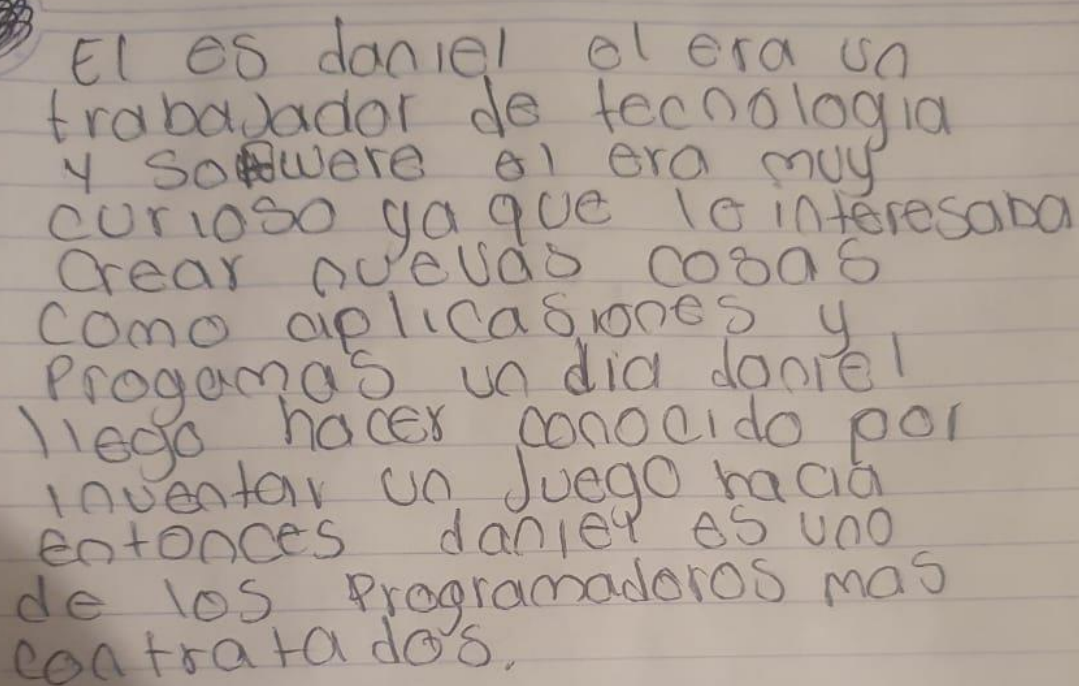 El es daniel el era un
trabajador de tecnologia
y sofwere el era muy
curioso ya que le interesaba
Crear nuevas cosas
como aplicasiones y
Progamas un dia daniel
llego hacer conocido por
inventar un Juego hacia
entonces daniel es uno
de los Programadoros mas
contratados.